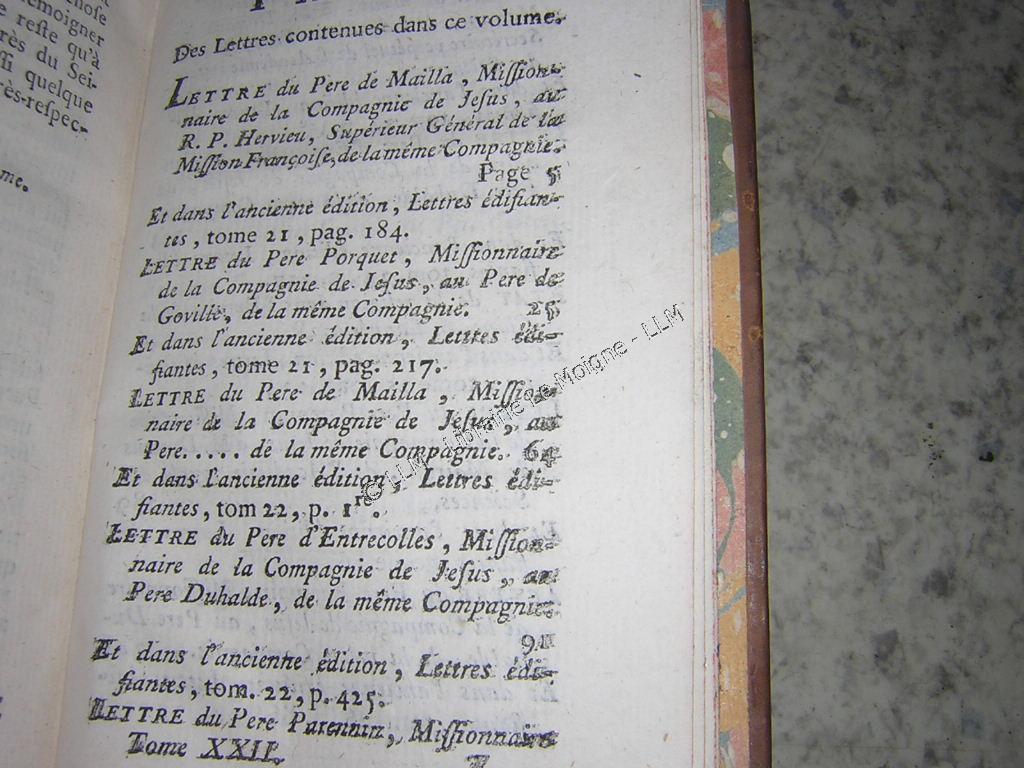 hose
émoigner
e reste qu'à
rès du Sei-
ssi quelque
rès-respec-
me.
Des Lettres contenues dans ce volume.
LETTRE du Pere de Mailla, Mission-
naire de la Compagnie de Jesus, au
R. P. Hervieu, Supérieur Général de la
Mission Françoise, de la même Compagnie.
Page 5
Et dans l'ancienne édition, Lettres édifian-
tes, tome 21, pag. 184.
LETTRE du Pere Porquet, Missionnaire
de la Compagnie de Jesus, au Pere de
Goville, de la même Compagnie. 25
Et dans l'ancienne édition, Lettres édi-
fiantes, tome 21, pag. 217.
LETTRE du Pere de Mailla, Mission-
naire de la Compagnie de Jesus, au
Pere..... de la même Compagnie. 64
Et dans l'ancienne édition, Lettres édi-
fiantes, tom 22, p. 1re.
LETTRE du Pere d'Entrecolles, Mission-
naire de la Compagnie de Jesus, au
Pere Duhalde, de la même Compagnie
91
Et dans l'ancienne édition, Lettres édi-
fiantes, tom. 22, p. 425.
LETTRE du Pere Parennin, Missionnaire
Tome XXII.
© LLM - Librairie Le Moigne - LLM